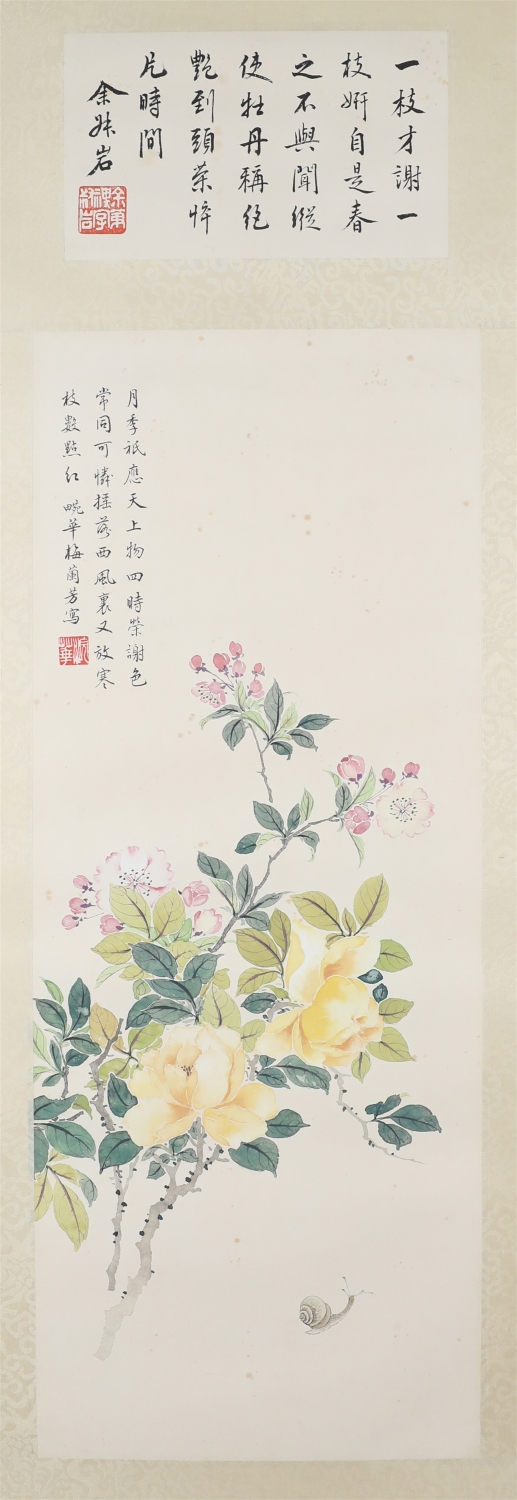 一枝才謝一
枝妍自是春
之不與聞縱
使牡丹稱絕
艷到頭榮悴
片時間
余叔岩
余第
禩字
叔岩
月季祇應天上物四時榮謝色
常同可憐搖落西風裏又放寒
枝數點紅 畹華梅蘭芳寫
畹華